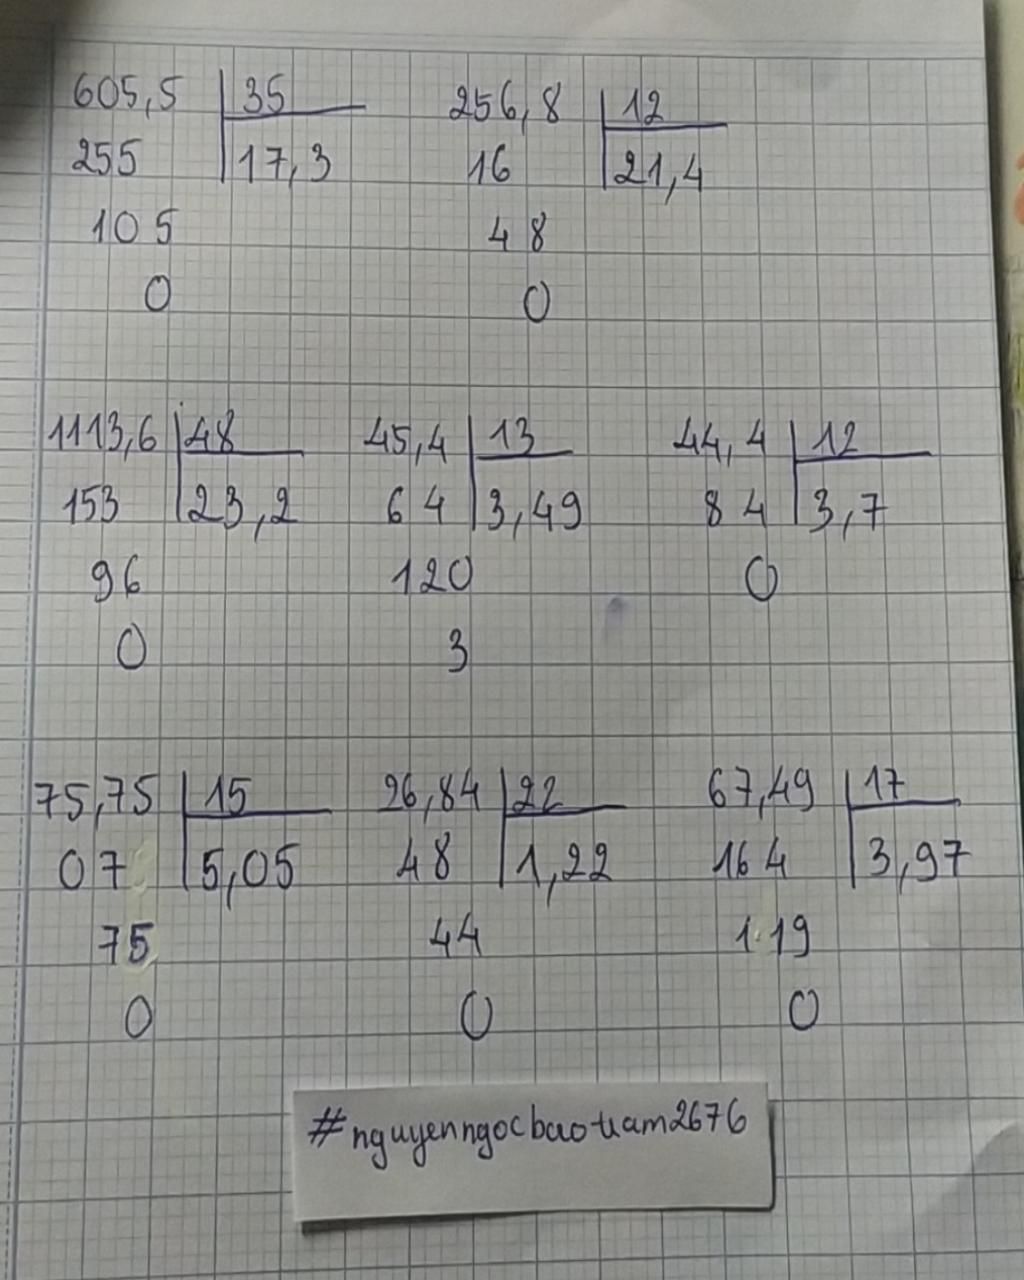 605,5 35 256,8 12
255 17,3 16 21,4
105 48
0 0
1113,6 48 45,4 13 44,4 12
153 23,2 64 3,49 84 3,7
96 120 0
0 3
75,75 15 26,84 22 67,49 17
07 5,05 48 1,22 164 3,97
75 44 119
0 0 0
#nguyenngocbaotram2676